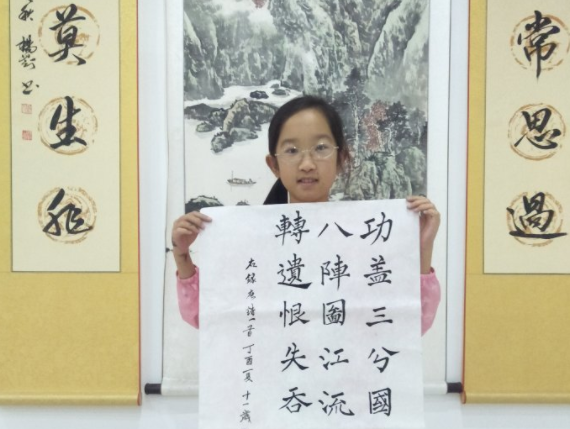 常思過
功盖三分國
八陣圖江流
轉遺恨失吞
右錄唐詩一首 丁酉夏 十一歲
莫生非